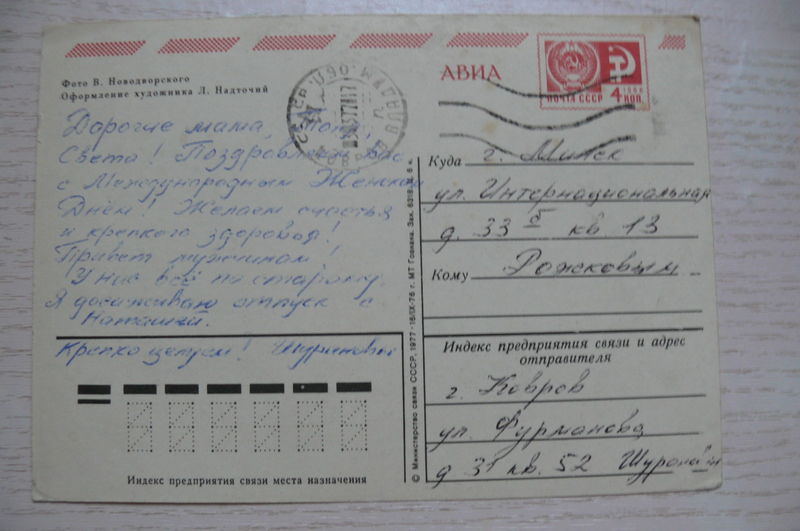 Фото В. Новодворского
Оформление художника Л. Надточий
АВИА
ПОЧТА СССР 4 КОП.
1966
Дорогие мама, Тоня,
Света! Поздравляем Вас
с Международным Женским
Днём. Желаем счастья
и крепкого здоровья!
Привет мужчинам!
У нас всё по старому.
Я догуливаю отпуск с
Наташей.
Крепко целуем!
Куда г. Минск
ул. Интернациональная
д. 33 б кв 13
Кому Рожковым
Индекс предприятия связи и адрес
отправителя
г. Ковров
ул. Фурманова
д 31 кв. 52
Индекс предприятия связи места назначения
© Министерство связи СССР, 1977 · 16/IX-76 г. МТ Гознака. Зак. 6318. 6 к.